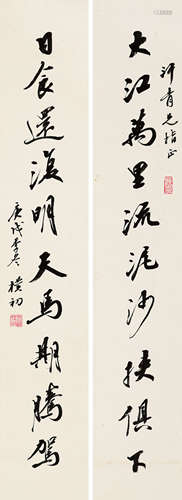 大江萬里流泥沙挾俱下
汗青兄指正
日食還復明天馬期騰駕
庚戌季冬 樸初